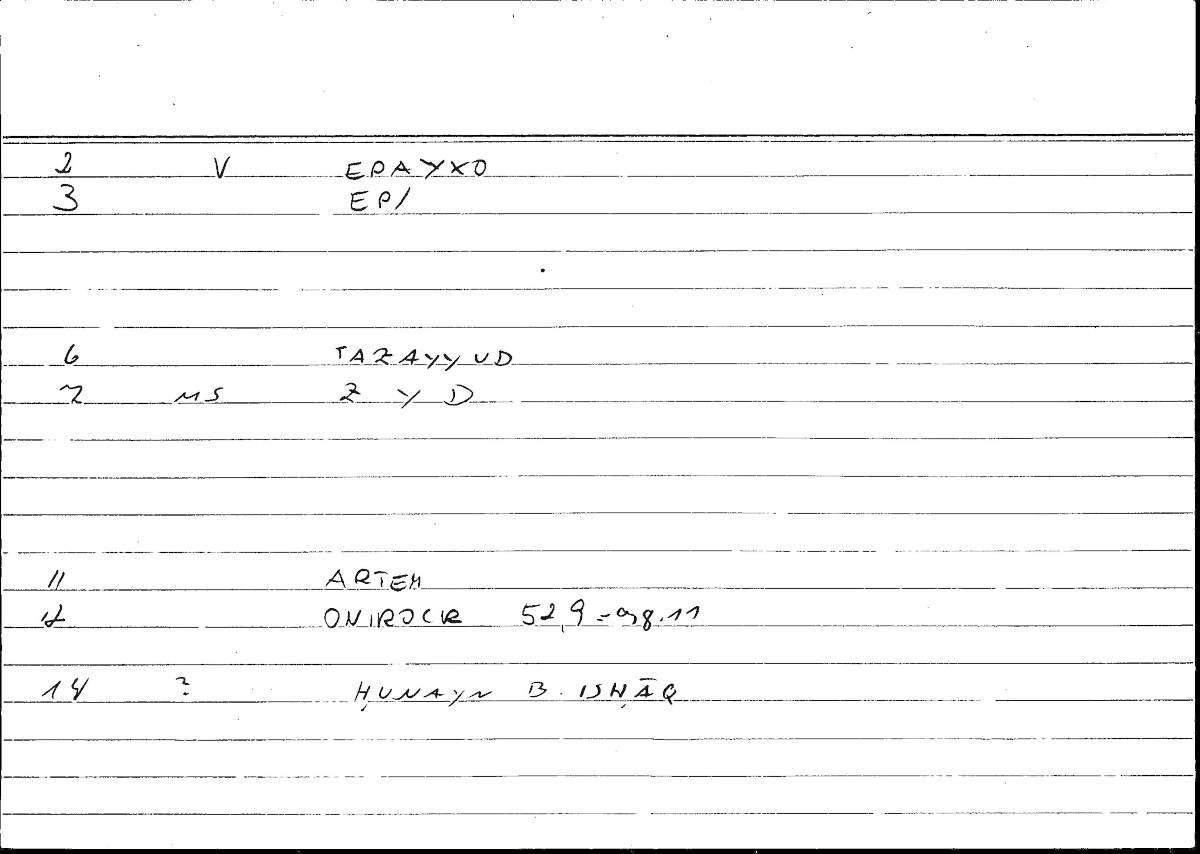 2 V EPAYXO
3 EP/
6 TAZAYYUD
7 MS Z Y D
11 ARTEM
12 ONIROCR 52,9 = 98.11
14 ? ḤUNAYN B. ISḤĀQ